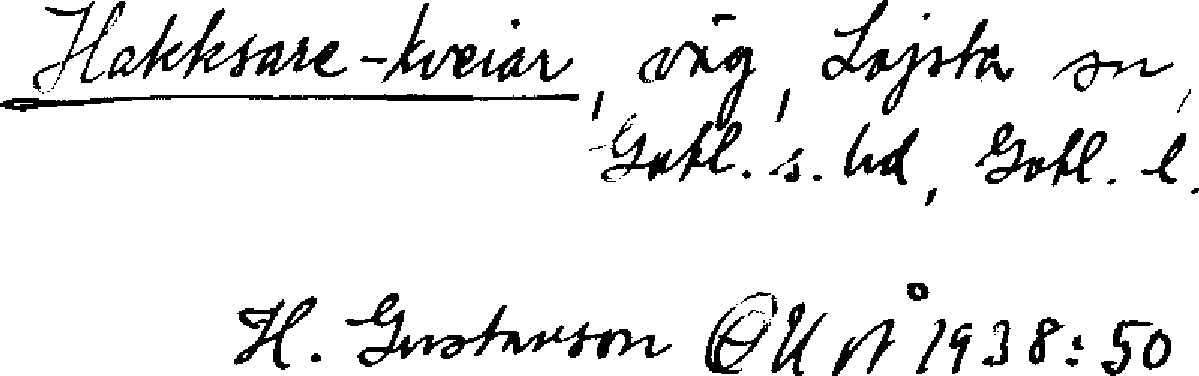 Hakksare-kveiar, väg, Lojsta sn,
Gotl. s. hd, Gotl. l.
H. Gustavson OUÅ 1938:50